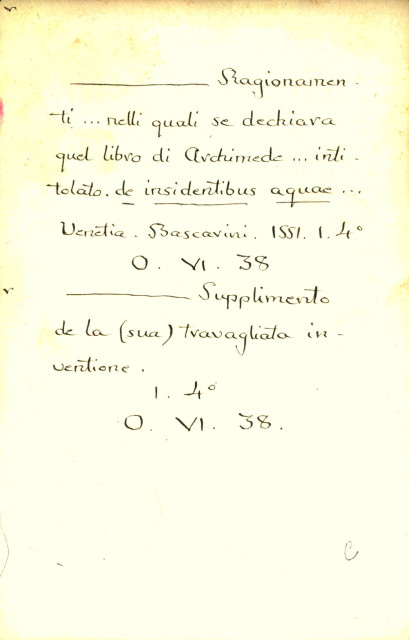 ——— Ragionamen-
ti ... nelli quali se dechiara
quel libro di Archimede ... inti-
tolato. de insidentibus aquae ...
Venetia. Bascavini. 1551. 1. 4°
O. VI. 38
——— Supplimento
de la (sua) travagliata in-
ventione.
1. 4°
O. VI. 38.
C